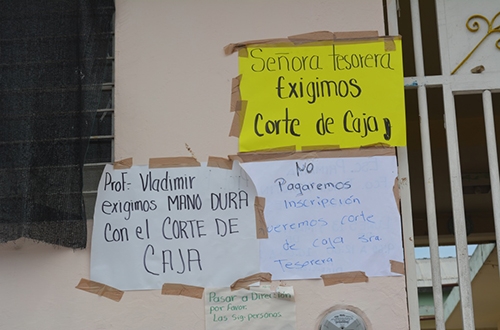 Señora tesorera
Exigimos
Corte de Caja,
Prof. Vladimir
exigimos MANO DURA
con el CORTE DE
CAJA
NO
Pagaremos
Inscripción
veremos corte
de caja sra
Tesorera
Pasar a Dirección
por favor.
Las sig. personas